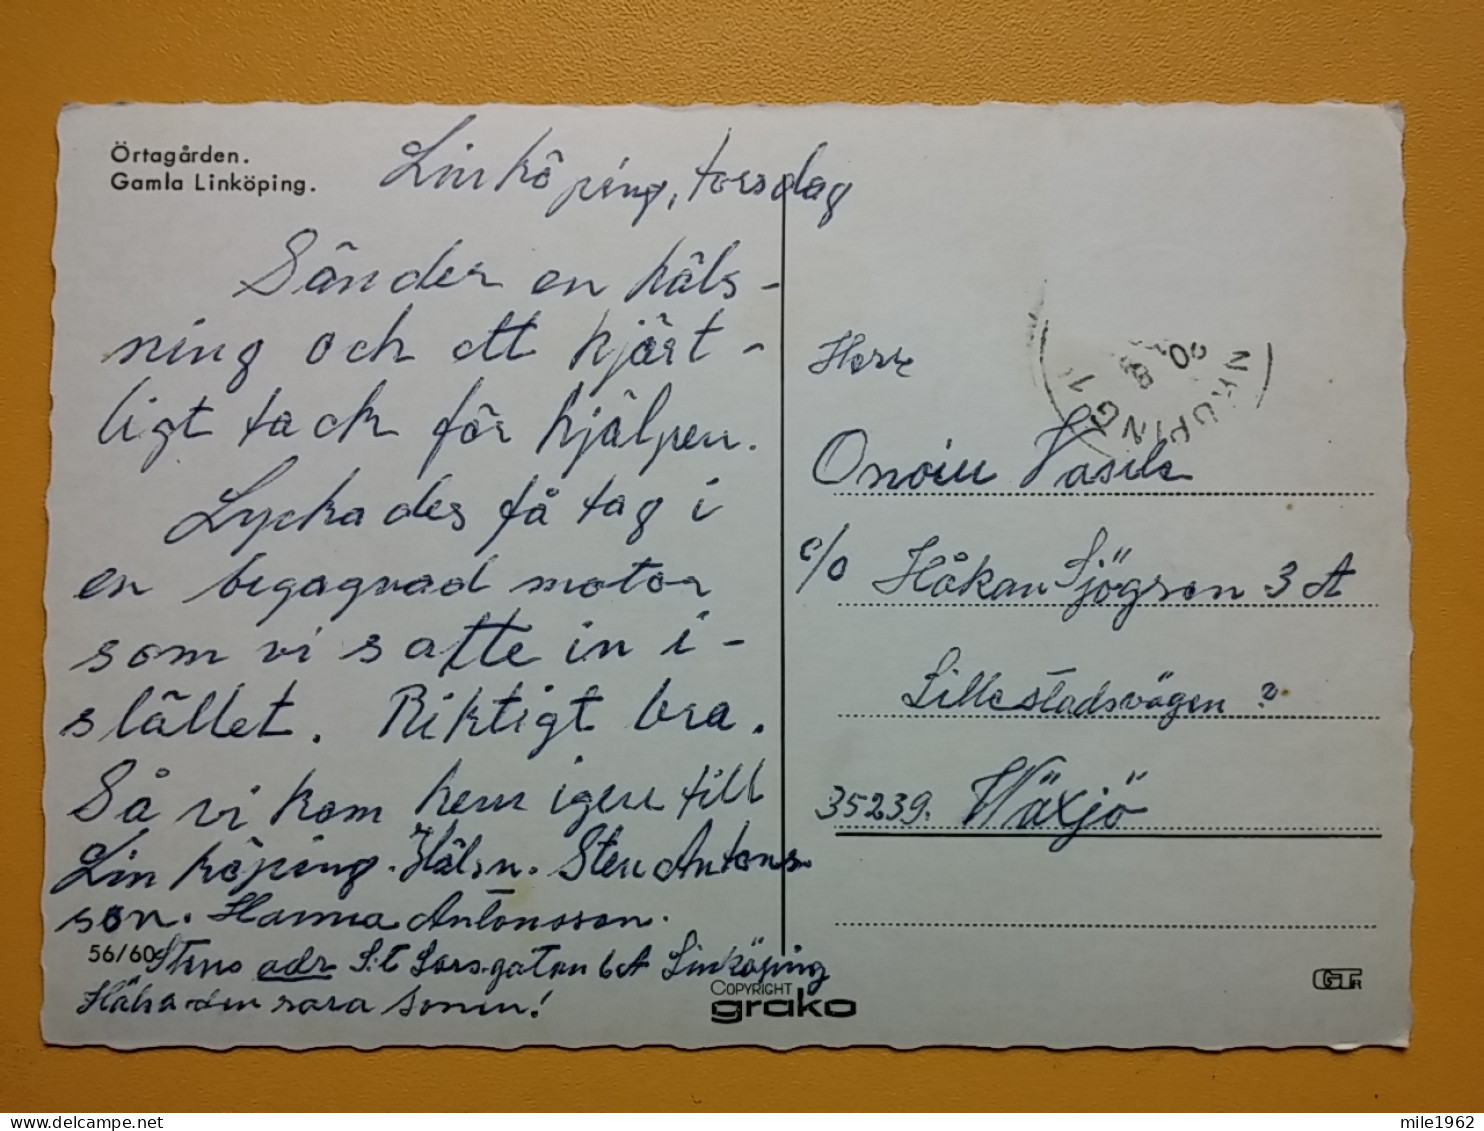 Örtagården.
Gamla Linköping.
Linköping, torsdag
Sänder en häls-
ning och ett hjärt-
ligt tack för hjälpen.
Lyckades få tag i
en begagnad motor
som vi satte in i-
stället. Riktigt bra.
Så vi kom hem igen till
Linköping. Hälsn. Sten Antons-
son. Hanna Antonsson.
56/60
Stens adr S:t Larsgatan 6A Linköping
Hälsa den rara sonen!
COPYRIGHT
grako
Herr
Onoiu Vasile
c/o Håkan Sjögren 3 A
Lillestadsvägen ?
35239. Wäxjö